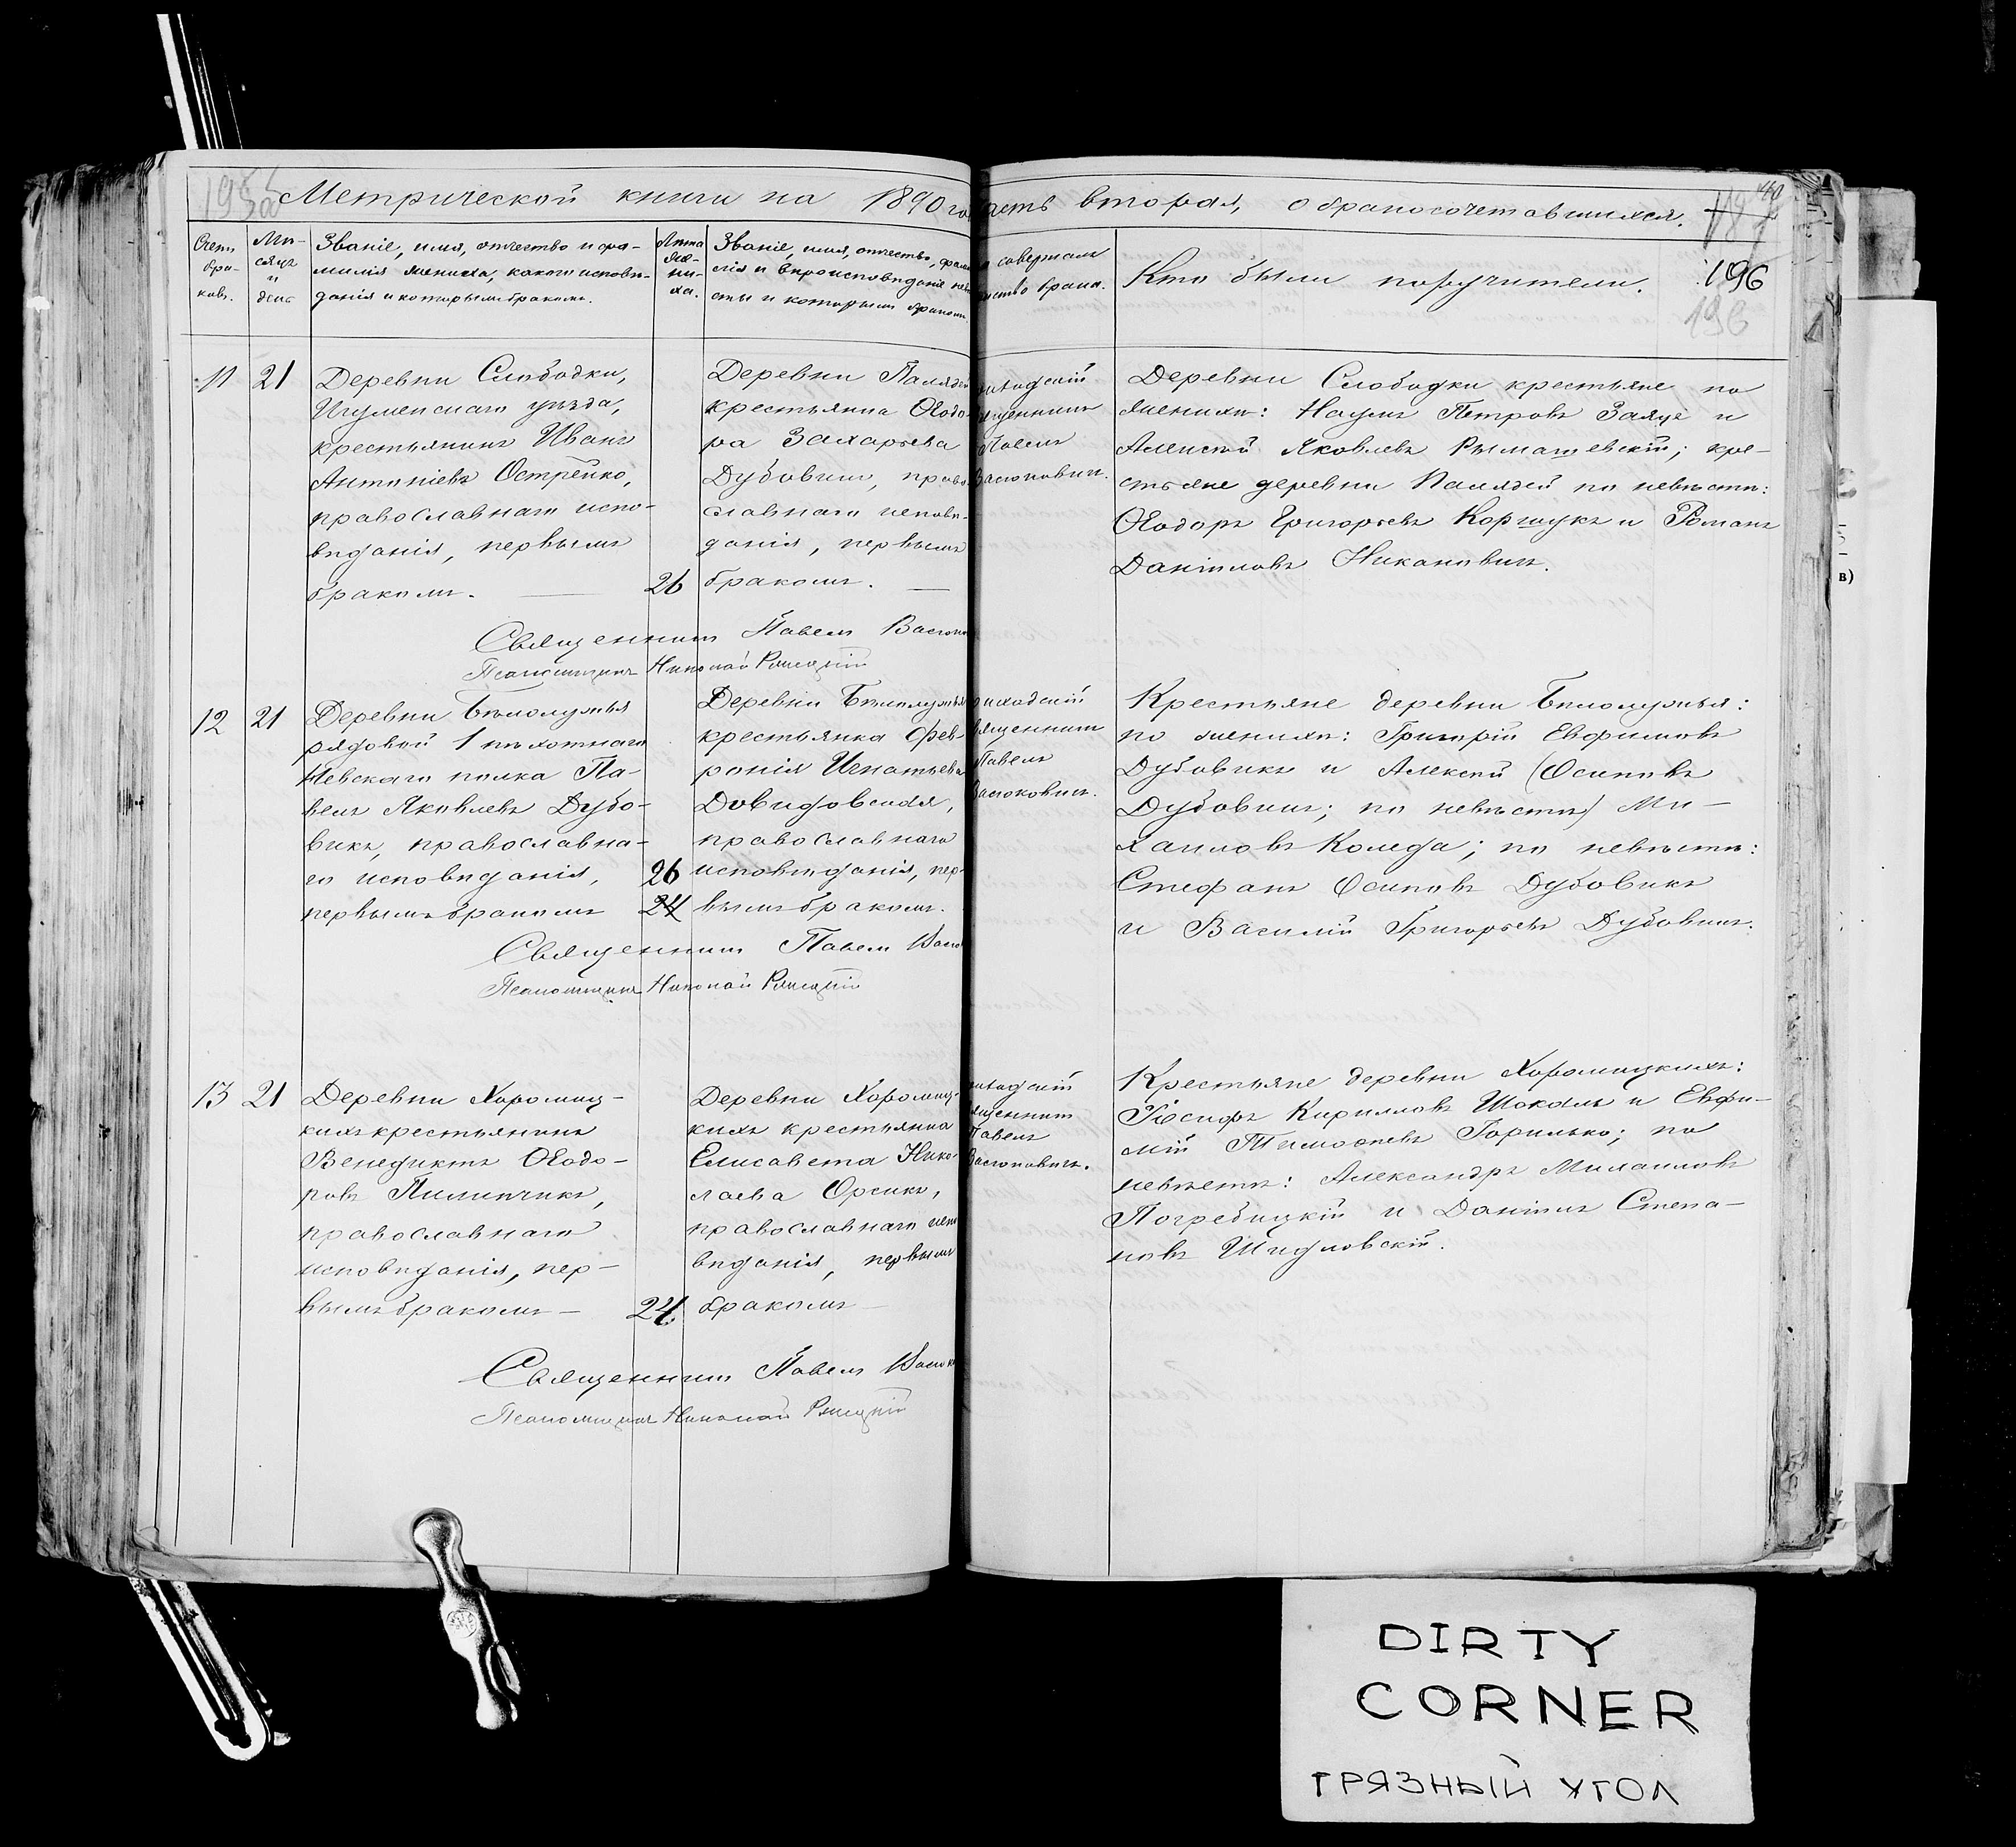 Метрической книги на 1890 го
асть вторая, о бракосочетавшихся.
40
187
196
196
Счетъ браковъ.
Мѣсяцъ и день
Званіе, имя, отчество и фа-
милія жениха, какого исповѣ-
данія и которымъ бракомъ.
Лѣта
же-
ни-
ха.
Званіе, имя, отчество, фами
лія и вѣроисповѣданіе невѣ
сты и которымъ бракомъ.
о совершалъ
нство брака.
Кто были поручители.
11 21
Деревни Слободки,
Игуменскаго уѣзда,
крестьянинъ Иванъ
Антоніевъ Острейко,
православнаго испо-
вѣданія, первымъ
бракомъ.
26
Деревни Палядей
крестьянка Ѳеодо-
ра Захарьева
Дубовикъ, право-
славнаго исповѣ-
данія, первымъ
бракомъ.
иходскій
ященникъ
Павелъ
Васюковичъ.
Деревни Слободки крестьяне по
женихѣ: Наумъ Петровъ Заяцъ и
Алексѣй Яковлевъ Рымашевскій; кре-
стьяне деревни Палядей по невѣстѣ:
Ѳеодоръ Григорьевъ Коршукъ и Романъ
Даніиловъ Никановичъ.
Священникъ Павелъ Васюк
Псаломщикъ Николай
12 21
Деревни Бѣлолужья
рядовой 1 пѣхотнаго
Невскаго полка Па-
велъ Яковлевъ Дубо-
викъ, православна-
го исповѣданія,
первымъ бракомъ
26
24
Деревни Бѣлолужья
крестьянка Фев-
ронія Игнатьева
Довидовская,
православнаго
исповѣданія, пер-
вымъ бракомъ.
риходскій
вященникъ
Павелъ
Васюковичъ.
Крестьяне деревни Бѣлолужья:
по женихѣ: Григорій Евфимовъ
Дубовикъ и Алексѣй (Осиповъ
Дубовикъ; по невѣстѣ) Ми-
хаиловъ Коледа; по невѣстѣ:
Стефанъ Осиповъ Дубовикъ
и Василій Григорьевъ Дубовикъ.
Священникъ Павелъ Васюк
Псаломщикъ Николай
13 21
Деревни Хоромиц-
кихъ крестьянинъ
Венедиктъ Ѳеодо-
ровъ Пилипчикъ,
православнаго
исповѣданія, пер-
вымъ бракомъ
24
Деревни Хоромиц-
кихъ крестьянка
Елисавета Нико-
лаева Орсикъ,
православнаго испо
вѣданія, первымъ
бракомъ
иходскій
ященникъ
Павелъ
Васюковичъ.
Крестьяне деревни Хоромицкихъ:
Іосифъ Кирилловъ Шокаль и Евфи-
мій Тимоѳеевъ Горилько; по
невѣстѣ: Александръ Михаиловъ
Погребицкій и Даніилъ Степа-
новъ Шидловскій.
Священникъ Павелъ Васюк
Псаломщикъ Николай
DIRTY
CORNER
ГРЯЗНЫЙ УГОЛ
в)